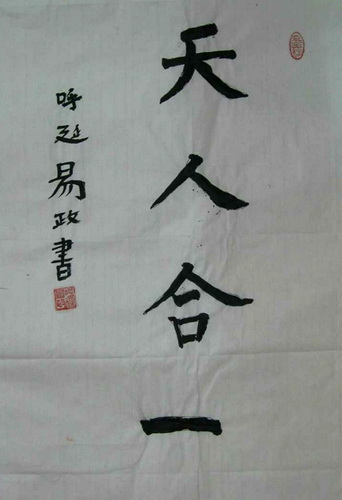 天人合一
呼延易政書